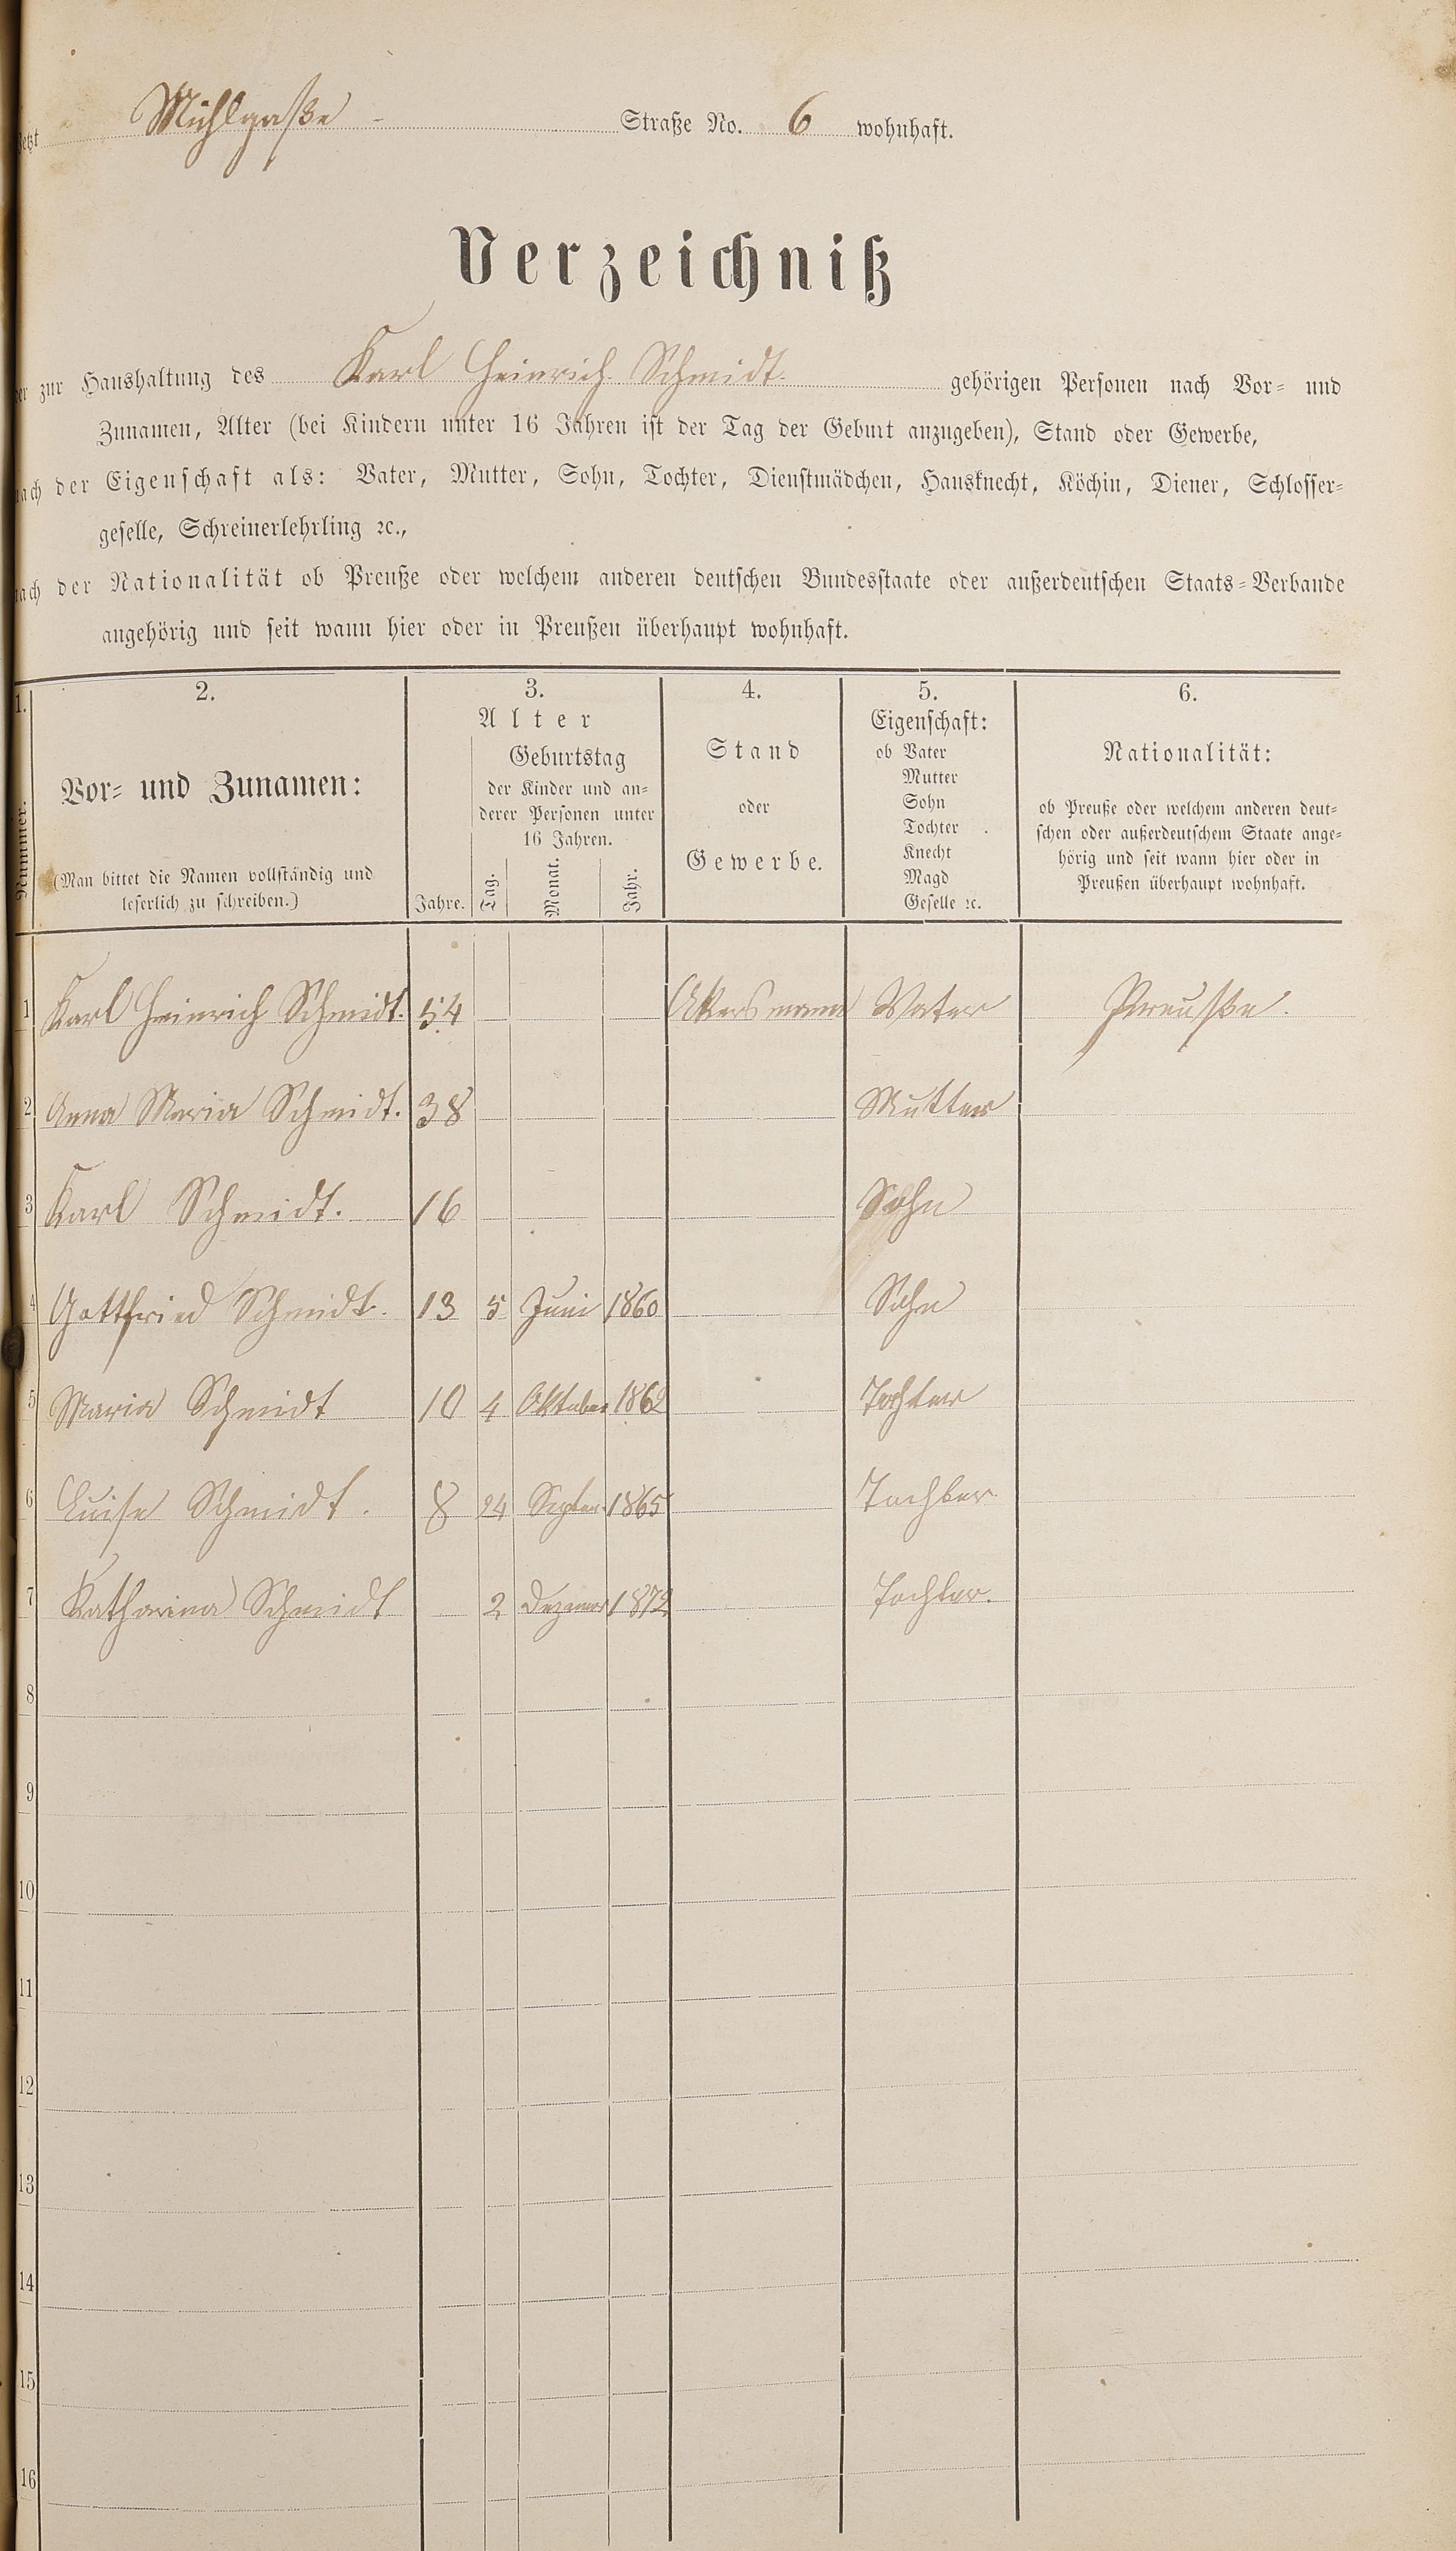 jetzt Mühlgaße - Straße No. 6 wohnhaft.
Verzeichniß
der zur Haushaltung des Karl Heinrich Schmidt. gehörigen Personen nach Vor- und
Zunamen, Alter (bei Kindern unter 16 Jahren ist der Tag der Geburt anzugeben), Stand oder Gewerbe,
nach der Eigenschaft als: Vater, Mutter, Sohn, Tochter, Dienstmädchen, Hausknecht, Köchin, Diener, Schlosser-
geselle, Schreinerlehrling ꝛc.,
nach der Nationalität ob Preuße oder welchem anderen deutschen Bundesstaate oder außerdeutschen Staats-Verbande
angehörig und seit wann hier oder in Preußen überhaupt wohnhaft.
1. 2. 3. 4. 5. 6.
Nummer.
Vor- und Zunamen:
(Man bittet die Namen vollständig und
leserlich zu schreiben.)
Alter
Jahre.
Geburtstag
der Kinder und an-
derer Personen unter
16 Jahren.
Tag. Monat. Jahr.
Stand
oder
Gewerbe.
Eigenschaft:
ob Vater
Mutter
Sohn
Tochter
Knecht
Magd
Geselle ꝛc.
Nationalität:
ob Preuße oder welchem anderen deut-
schen oder außerdeutschem Staate ange-
hörig und seit wann hier oder in
Preußen überhaupt wohnhaft.
1 Karl Heinrich Schmidt. 54 Akersmann Vater Preusße.
2 Anna Maria Schmidt. 38 Mutter
3 Karl Schmidt. 16 Sohn
4 Gottfried Schmidt. 13 5 Juni 1860 Sohn
5 Maria Schmidt 10 4 Oktober 1862 Tochter
6 Luise Schmidt. 8 24 1865 Tochter
7 Katharina Schmidt 2 1872 Tochter.
8
9
10
11
12
13
14
15
16